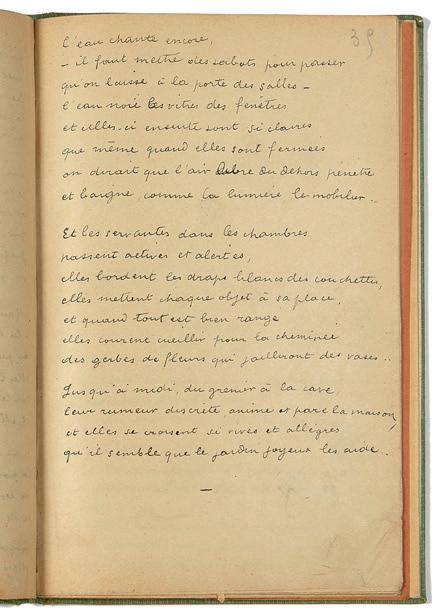 39
l'eau chante encore,
– il faut mettre des sabots pour passer
qu'on laisse à la porte des salles –
l'eau noie les vitres des fenêtres
et celles-ci ensuite sont si claires
que même quand elles sont fermées
on dirait que l'air libre du dehors pénètre
et baigne, comme la lumière le mobilier..
Et les servantes dans les chambres
passent actives et alertes,
elles bordent les draps blancs des couchettes,
elles mettent chaque objet à sa place,
et quand tout est bien rangé
elles courent cueillir pour la cheminée
des gerbes de fleurs qui jailliront des vases..
Jusqu'à midi, du grenier à la cave,
leur rumeur discrète anime et pare la maison,
et elles se croisent si vives et allègres
qu'il semble que le jardin joyeux les aide..
–